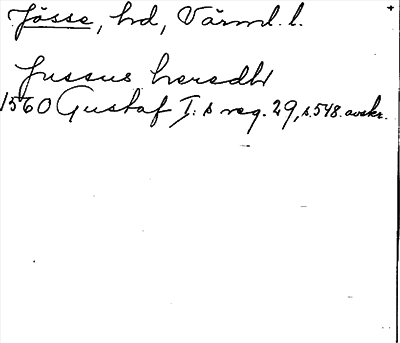 Jösse, hd, Värml. l.
Jussus heredh
1560 Gustaf I:s reg. 29, s. 548. avskr.